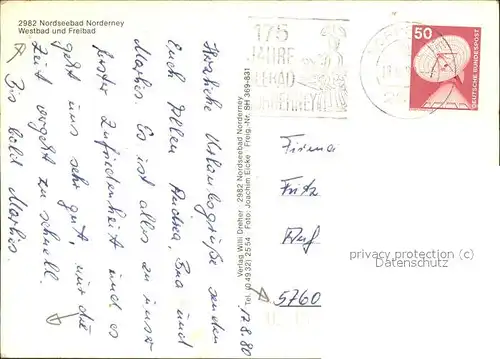 2982 Nordseebad Norderney
Westbad und Freibad
Herzliche Urlaubsgrüße senden
Euch Ellen Andrea, Eva und
Marlies. Es ist alles zu unser
fester Zufriedenheit und es
geht uns sehr gut, nur die
Zeit vergeht zu schnell.
Bis bald Marlies.
17.8.80
Verlag Willi Dreher 2982 Nordseebad Norderney
Tel. (04932) 2554 Foto: Joachim Eicke Freig.-Nr. SH 369-831
175
JAHRE
SEEBAD
NORDERNEY
50
DEUTSCHE BUNDESPOST
Firma
Fritz
5760
privacy protection
Datenschutz